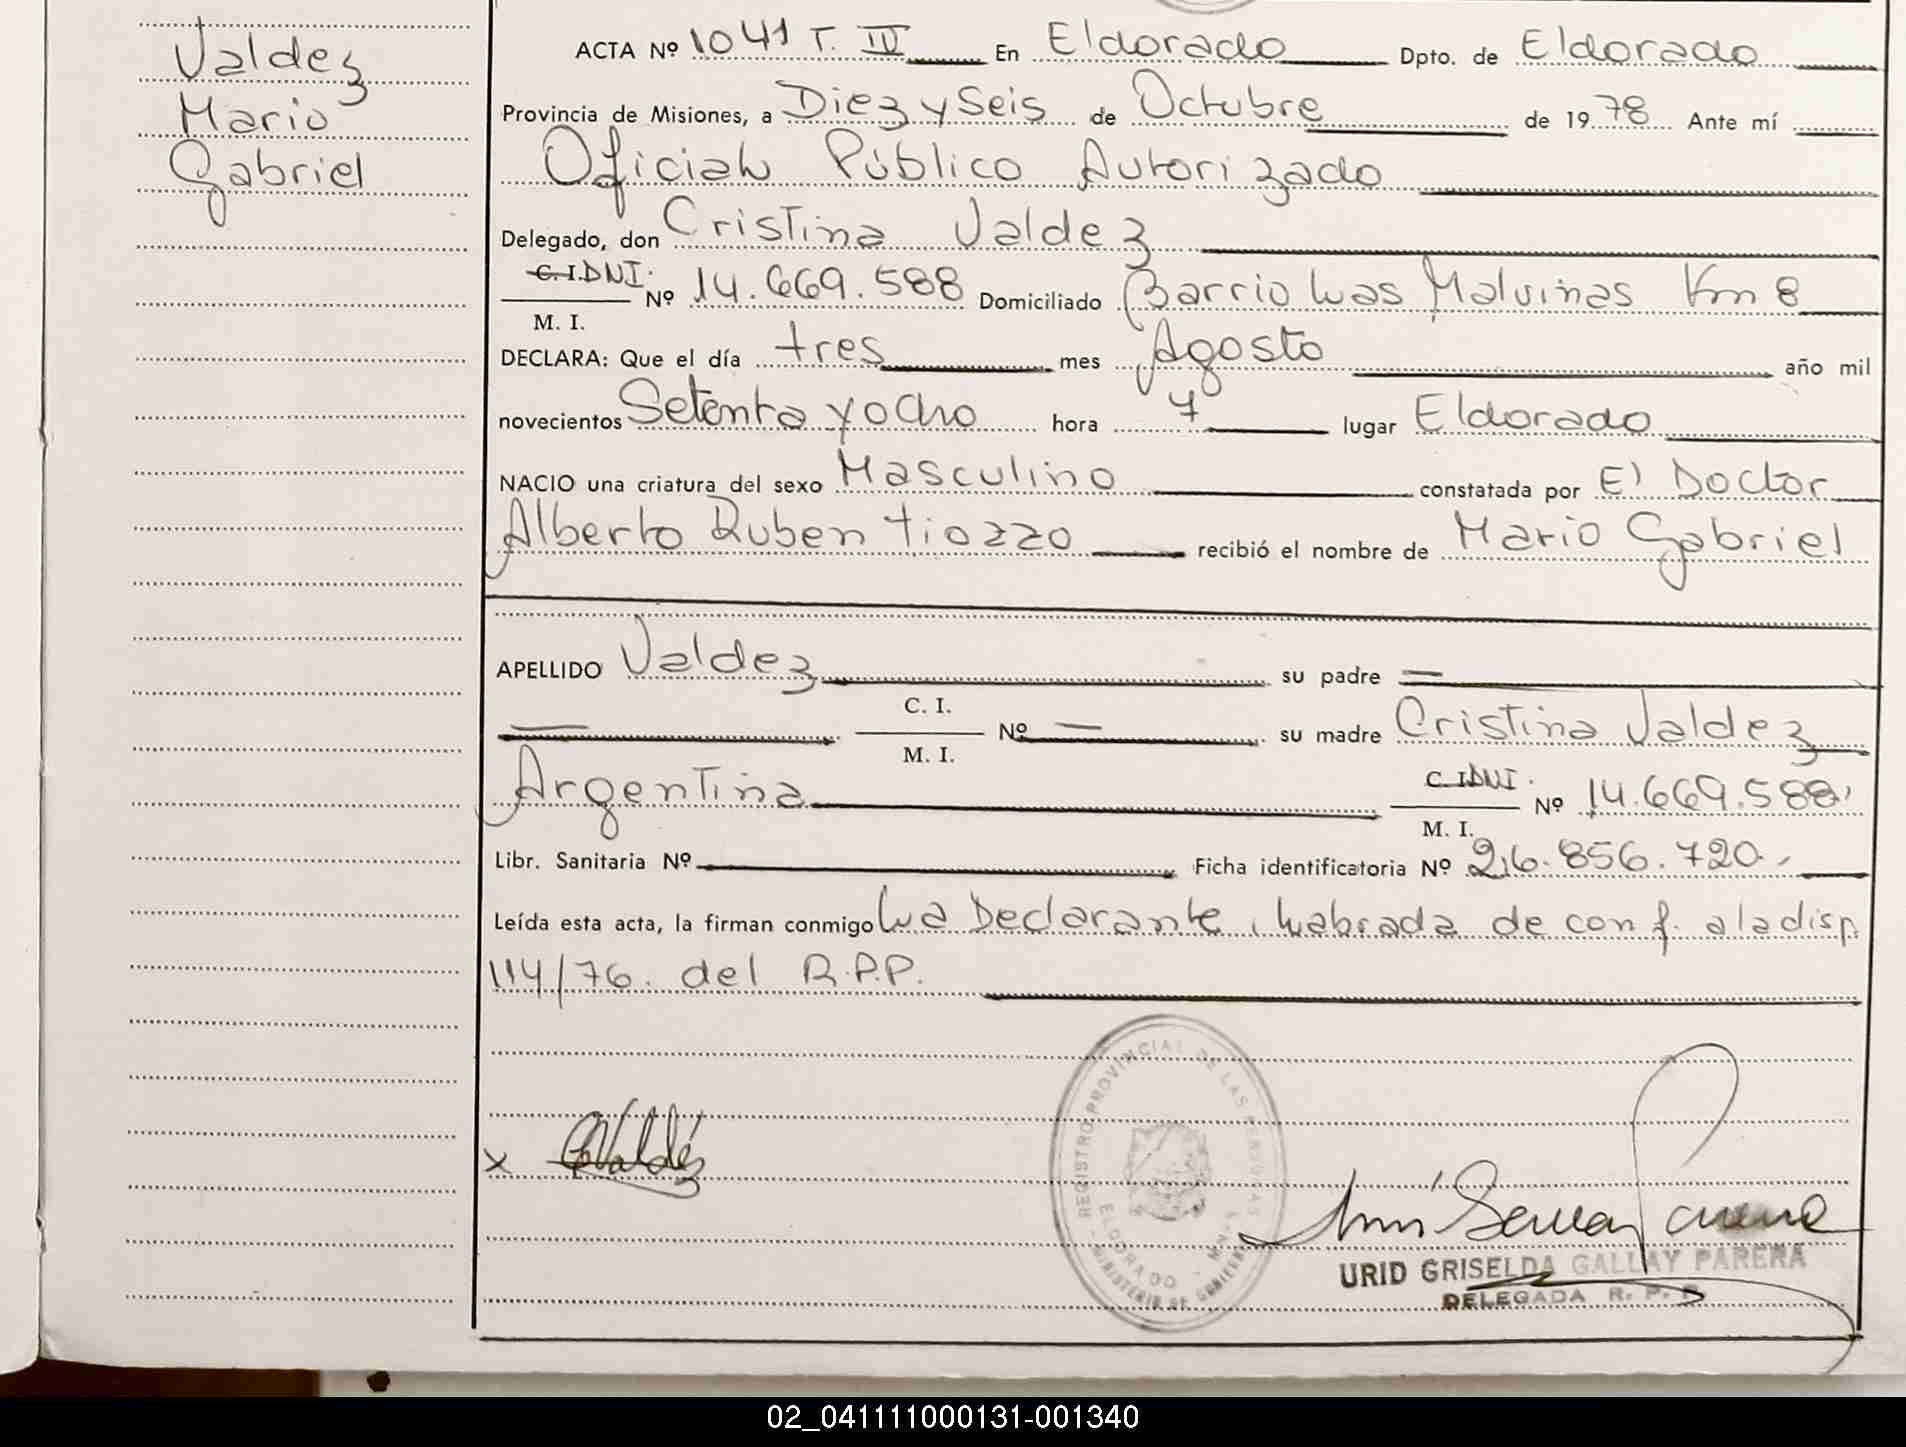 Valdez
Mario
Gabriel
ACTA Nº 1041 T. IV En Eldorado Dpto. de Eldorado
Provincia de Misiones, a Diez y Seis de Octubre de 1978 Ante mí
Oficial Público Autorizado
Delegado, don Cristina Valdez
C.I. DNI. Nº 14.669.588 Domiciliado Barrio Las Malvinas Km 8
M. I.
DECLARA: Que el día tres mes Agosto año mil
novecientos Setenta y ocho hora 7 lugar Eldorado
NACIO una criatura del sexo Masculino constatada por El Doctor
Alberto Ruben Tiozzo recibió el nombre de Mario Gabriel
APELLIDO Valdez su padre —
— C. I. Nº — su madre Cristina Valdez
M. I.
Argentina C.I. DNI. Nº 14.669.588
M. I.
Libr. Sanitaria Nº Ficha identificatoria Nº 26.856.720.
Leída esta acta, la firman conmigo La Declarante, Labrada de conf. a la disp.
114/76. del R.P.P.
REGISTRO PROVINCIAL DE LAS PERSONAS
ELDORADO
MINISTERIO DE GOBIERNO
x CValdéz
URID GRISELDA GALLAY PARERA
DELEGADA R. P. P
02_041111000131-001340